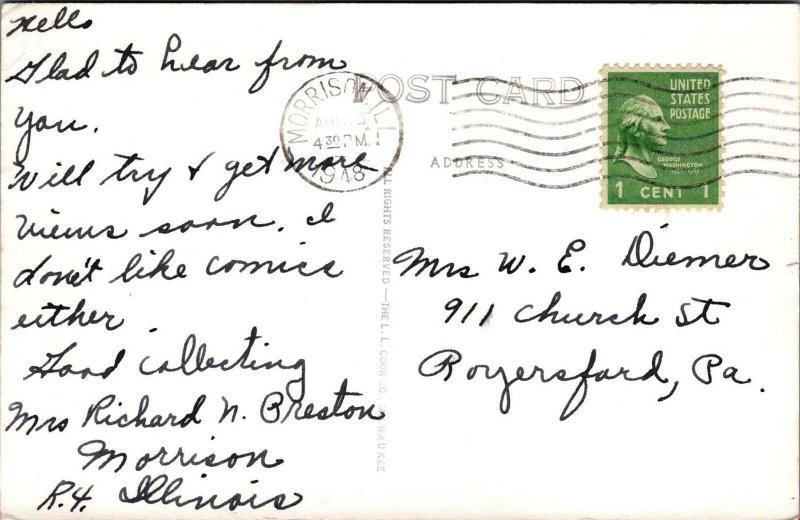 Hello
Glad to hear from
you.
Will try & get more
views soon. I
don't like comics
either
Good collecting
Mrs Richard N. Preston
Morrison
R.4. Illinois
POST CARD
ADDRESS
MORRISON, ILL.
AUG
4 30 PM
1948
UNITED
STATES
POSTAGE
GEORGE
WASHINGTON
1 CENT 1
ALL RIGHTS RESERVED—THE L. L. COOK CO. MILWAUKEE
Mrs W. E. Diemer
911 Church St
Royersford, Pa.